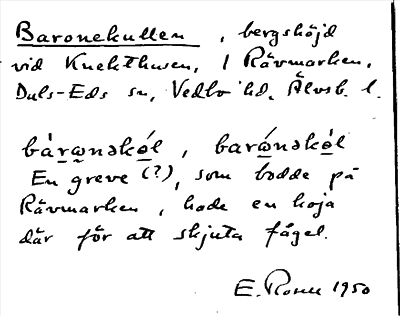 Baronekullen, bergshöjd
vid Knekthusen, i Rävmarken,
Dals-Eds sn, Vedbo hd, Älvsb. l.
bàrω̲nəkó̲l, barώ̲nəkò̲l
En greve (?), som bodde på
Rävmarken, hade en koja
där för att skjuta fågel.
E. 1950